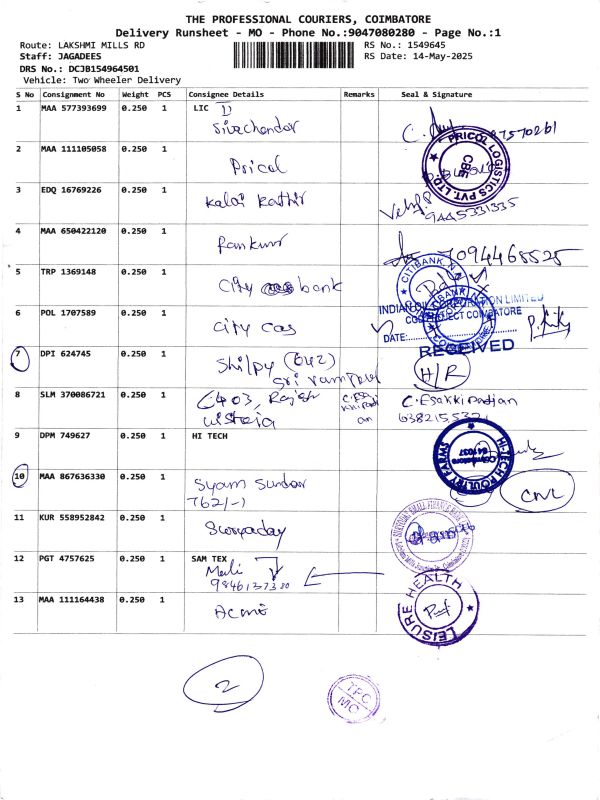 THE PROFESSIONAL COURIERS, COIMBATORE
Delivery Runsheet - MO - Phone No.:9047080280 - Page No.:1
Route: LAKSHMI MILLS RD
RS No.: 1549645
Staff: JAGADEES
RS Date: 14-May-2025
DRS No.: DCJB154964501
Vehicle: Two Wheeler Delivery
S No Consignment No Weight PCS Consignee Details Remarks Seal & Signature
1 MAA 577393699 0.250 1 LIC
Sivachandar
2 MAA 111105058 0.250 1 Pricol
PRICOL LOGISTICS PVT. LTD. CBE
3 EDQ 16769226 0.250 1 Kalai Kathir
9445331335
4 MAA 650422120 0.250 1 Ramkumar
7094468525
5 TRP 1369148 0.250 1 City bank
CITIBANK N.
6 POL 1707589 0.250 1 City Gas
INDIAN OIL CORPORATION LIMITED
COIMBATORE
DATE:
RECEIVED
7 DPI 624745 0.250 1 Shilpy (642)
H/R
8 SLM 370086721 0.250 1 C403, Rajesh
wisteria
C. Esakkipadian
6382155321
9 DPM 749627 0.250 1 HI TECH
HI-TECH POULTRY FARMS Coimbatore 641037
10 MAA 867636330 0.250 1 Syam Sundar
762/-)
CNL
11 KUR 558952842 0.250 1 Suryaday
12 PGT 4757625 0.250 1 SAM TEX
9846137380
13 MAA 111164438 0.250 1 Acme
LEISURE HEALTH
2
TPC
MO